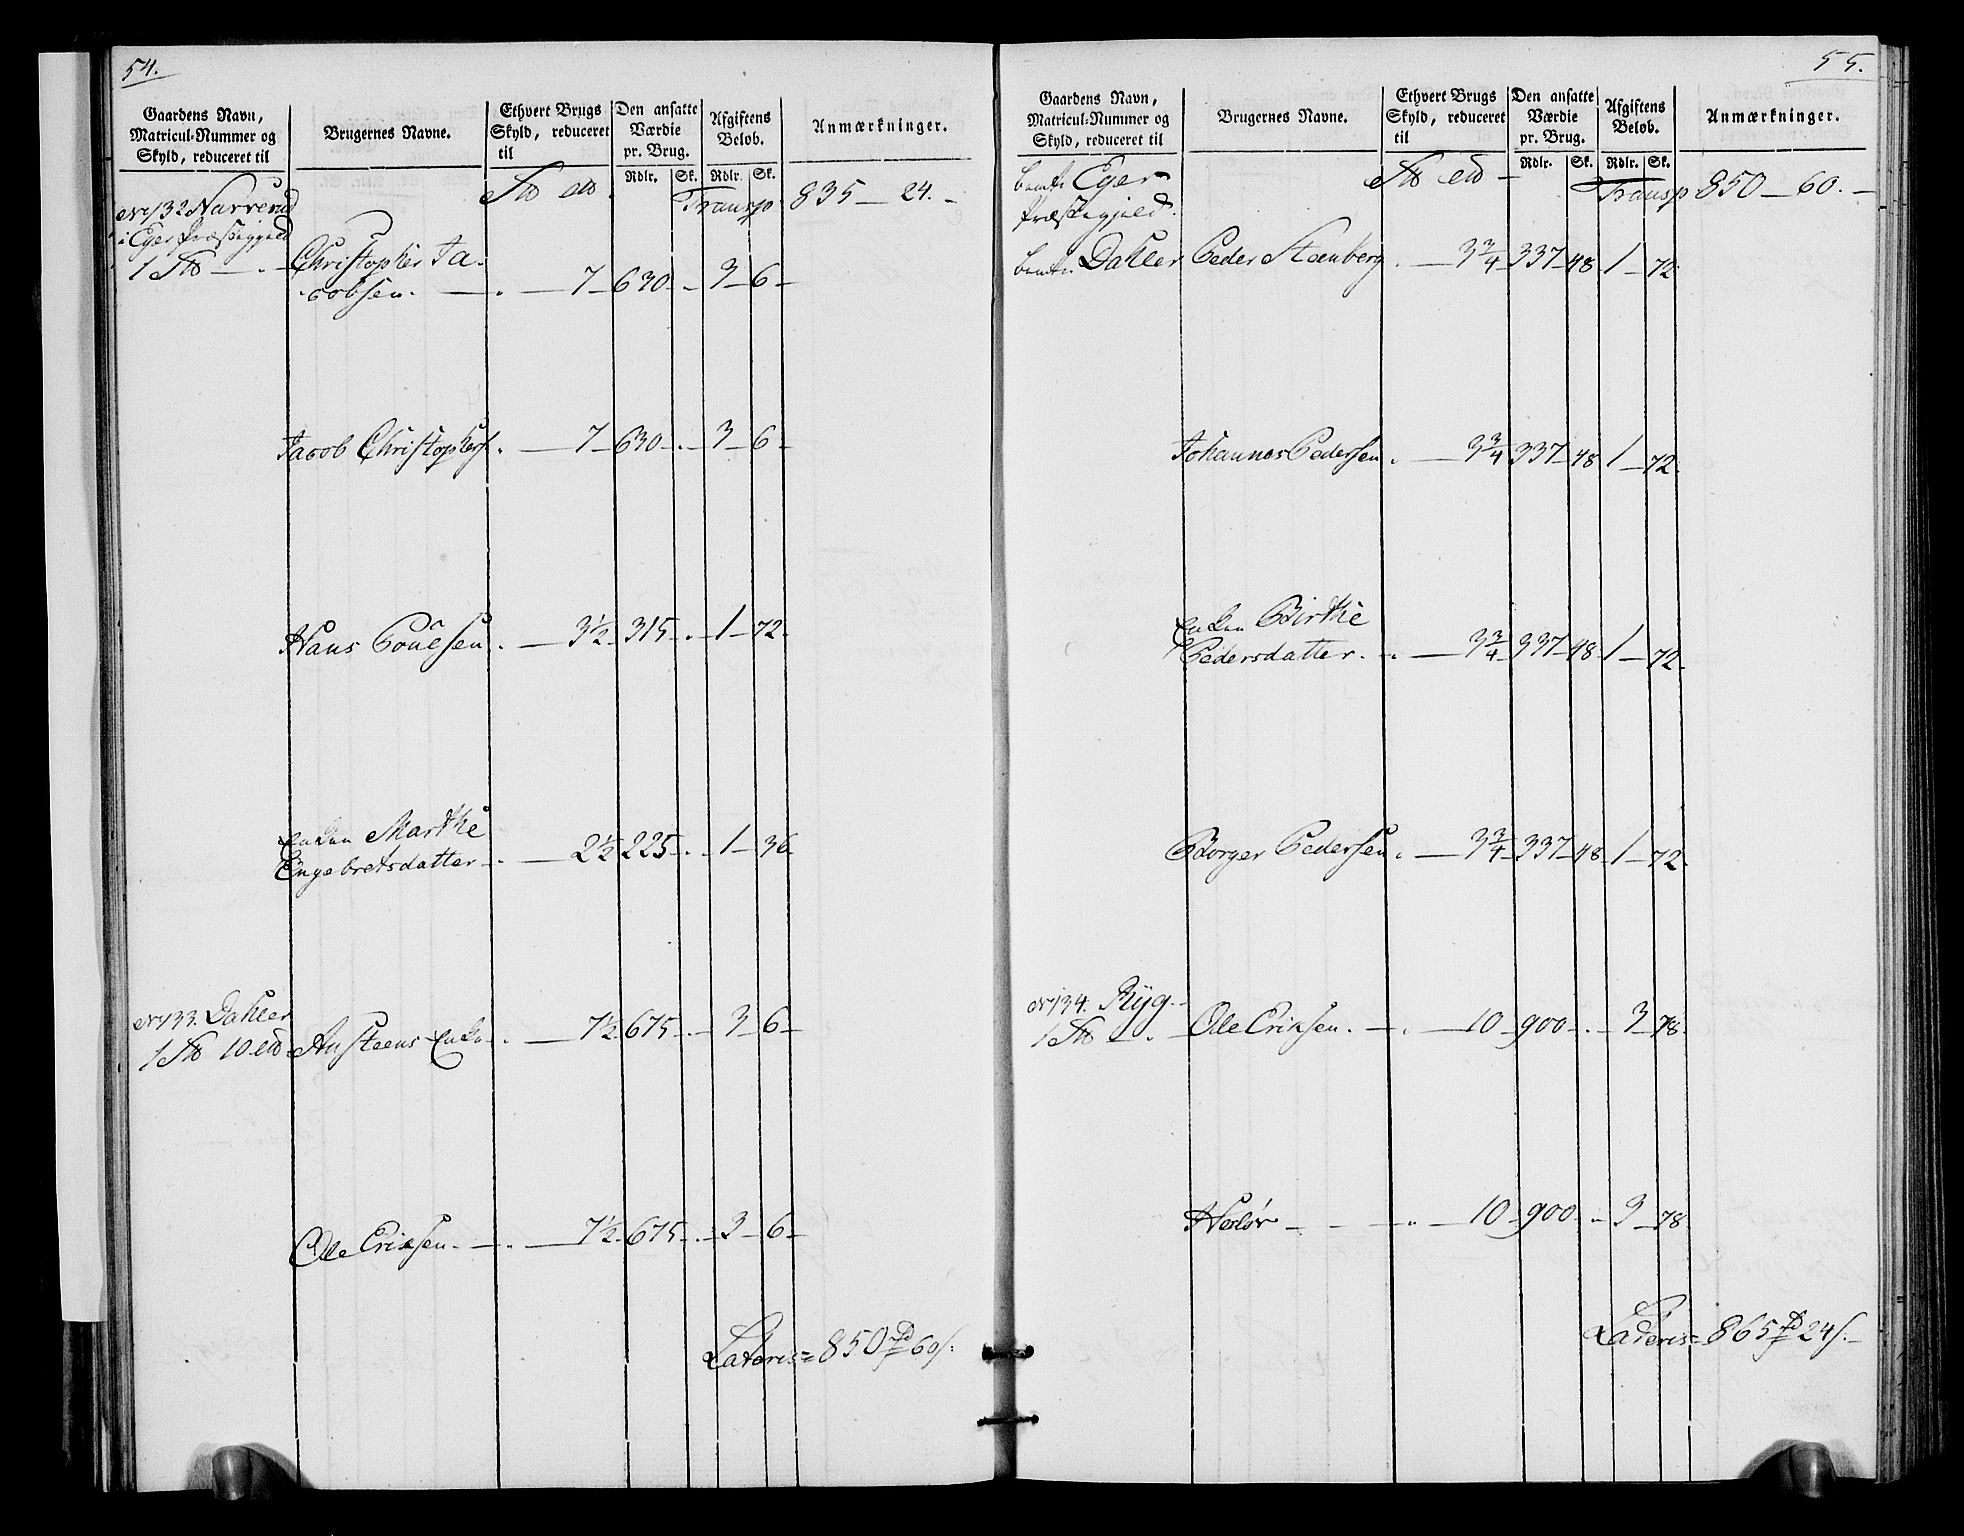 54.
Gaardens Navn,
Matricul-Nummer og
Skyld, reduceret til
Brugernes Navne.
Ethvert Brugs
Skyld, reduceret
til
Den ansatte
Værdie
pr. Brug.
Rdlr. Sk.
Afgiftens
Beløb.
Rdlr. Sk.
Anmærkninger.
Transp 835 — 24. -
No 132 Narverud
i Eger Præstegjeld
1
Christopher Ja-
cobsen. — . — 7 — 630 - . - 3 — 6 -
Jacob Christophers. . — 7 — 630 - . - 3 — 6 -
Hans Poulsen . — 3½ - 315 - . - 1 — 72 -
Enken Marthe
Engebretsdatter - . — 2½ 225 - . - 1 — 36
No 133. Dahler
1 10
Ansteens Enke - . — 7½ - 675 - . - 3 — 6 -
Ole Eriksen. — . — 7½ - 675 - . - 3 — 6 -
Lateris = 850 60 s.
55.
Gaardens Navn,
Matricul-Nummer og
Skyld, reduceret til
Brugernes Navne.
Ethvert Brugs
Skyld, reduceret
til
Den ansatte
Værdie
pr. Brug.
Rdlr. Sk.
Afgiftens
Beløb.
Rdlr. Sk.
Anmærkninger.
Transp 850 — 60. -
Eger
Præstegjeld.
Dahler Peder Steenberg . — 3¾ 337 - 48 1 — 72 -
Johannes Pedersen . — 3¾ 337 - 48 - 1 — 72 -
Enken Birthe
Pedersdatter. - . — 3¾ 337 - 48 - 1 — 72 -
Borger Pedersen . — 3¾ - 337 - 48 - 1 — 72 -
No 134. Ryg. -
1
Ole Eriksen. — . — 10 - 900 - . - 3 — 78 -
— 10 - 900 - . - 3 — 78
Lateris = 865 24 s. -